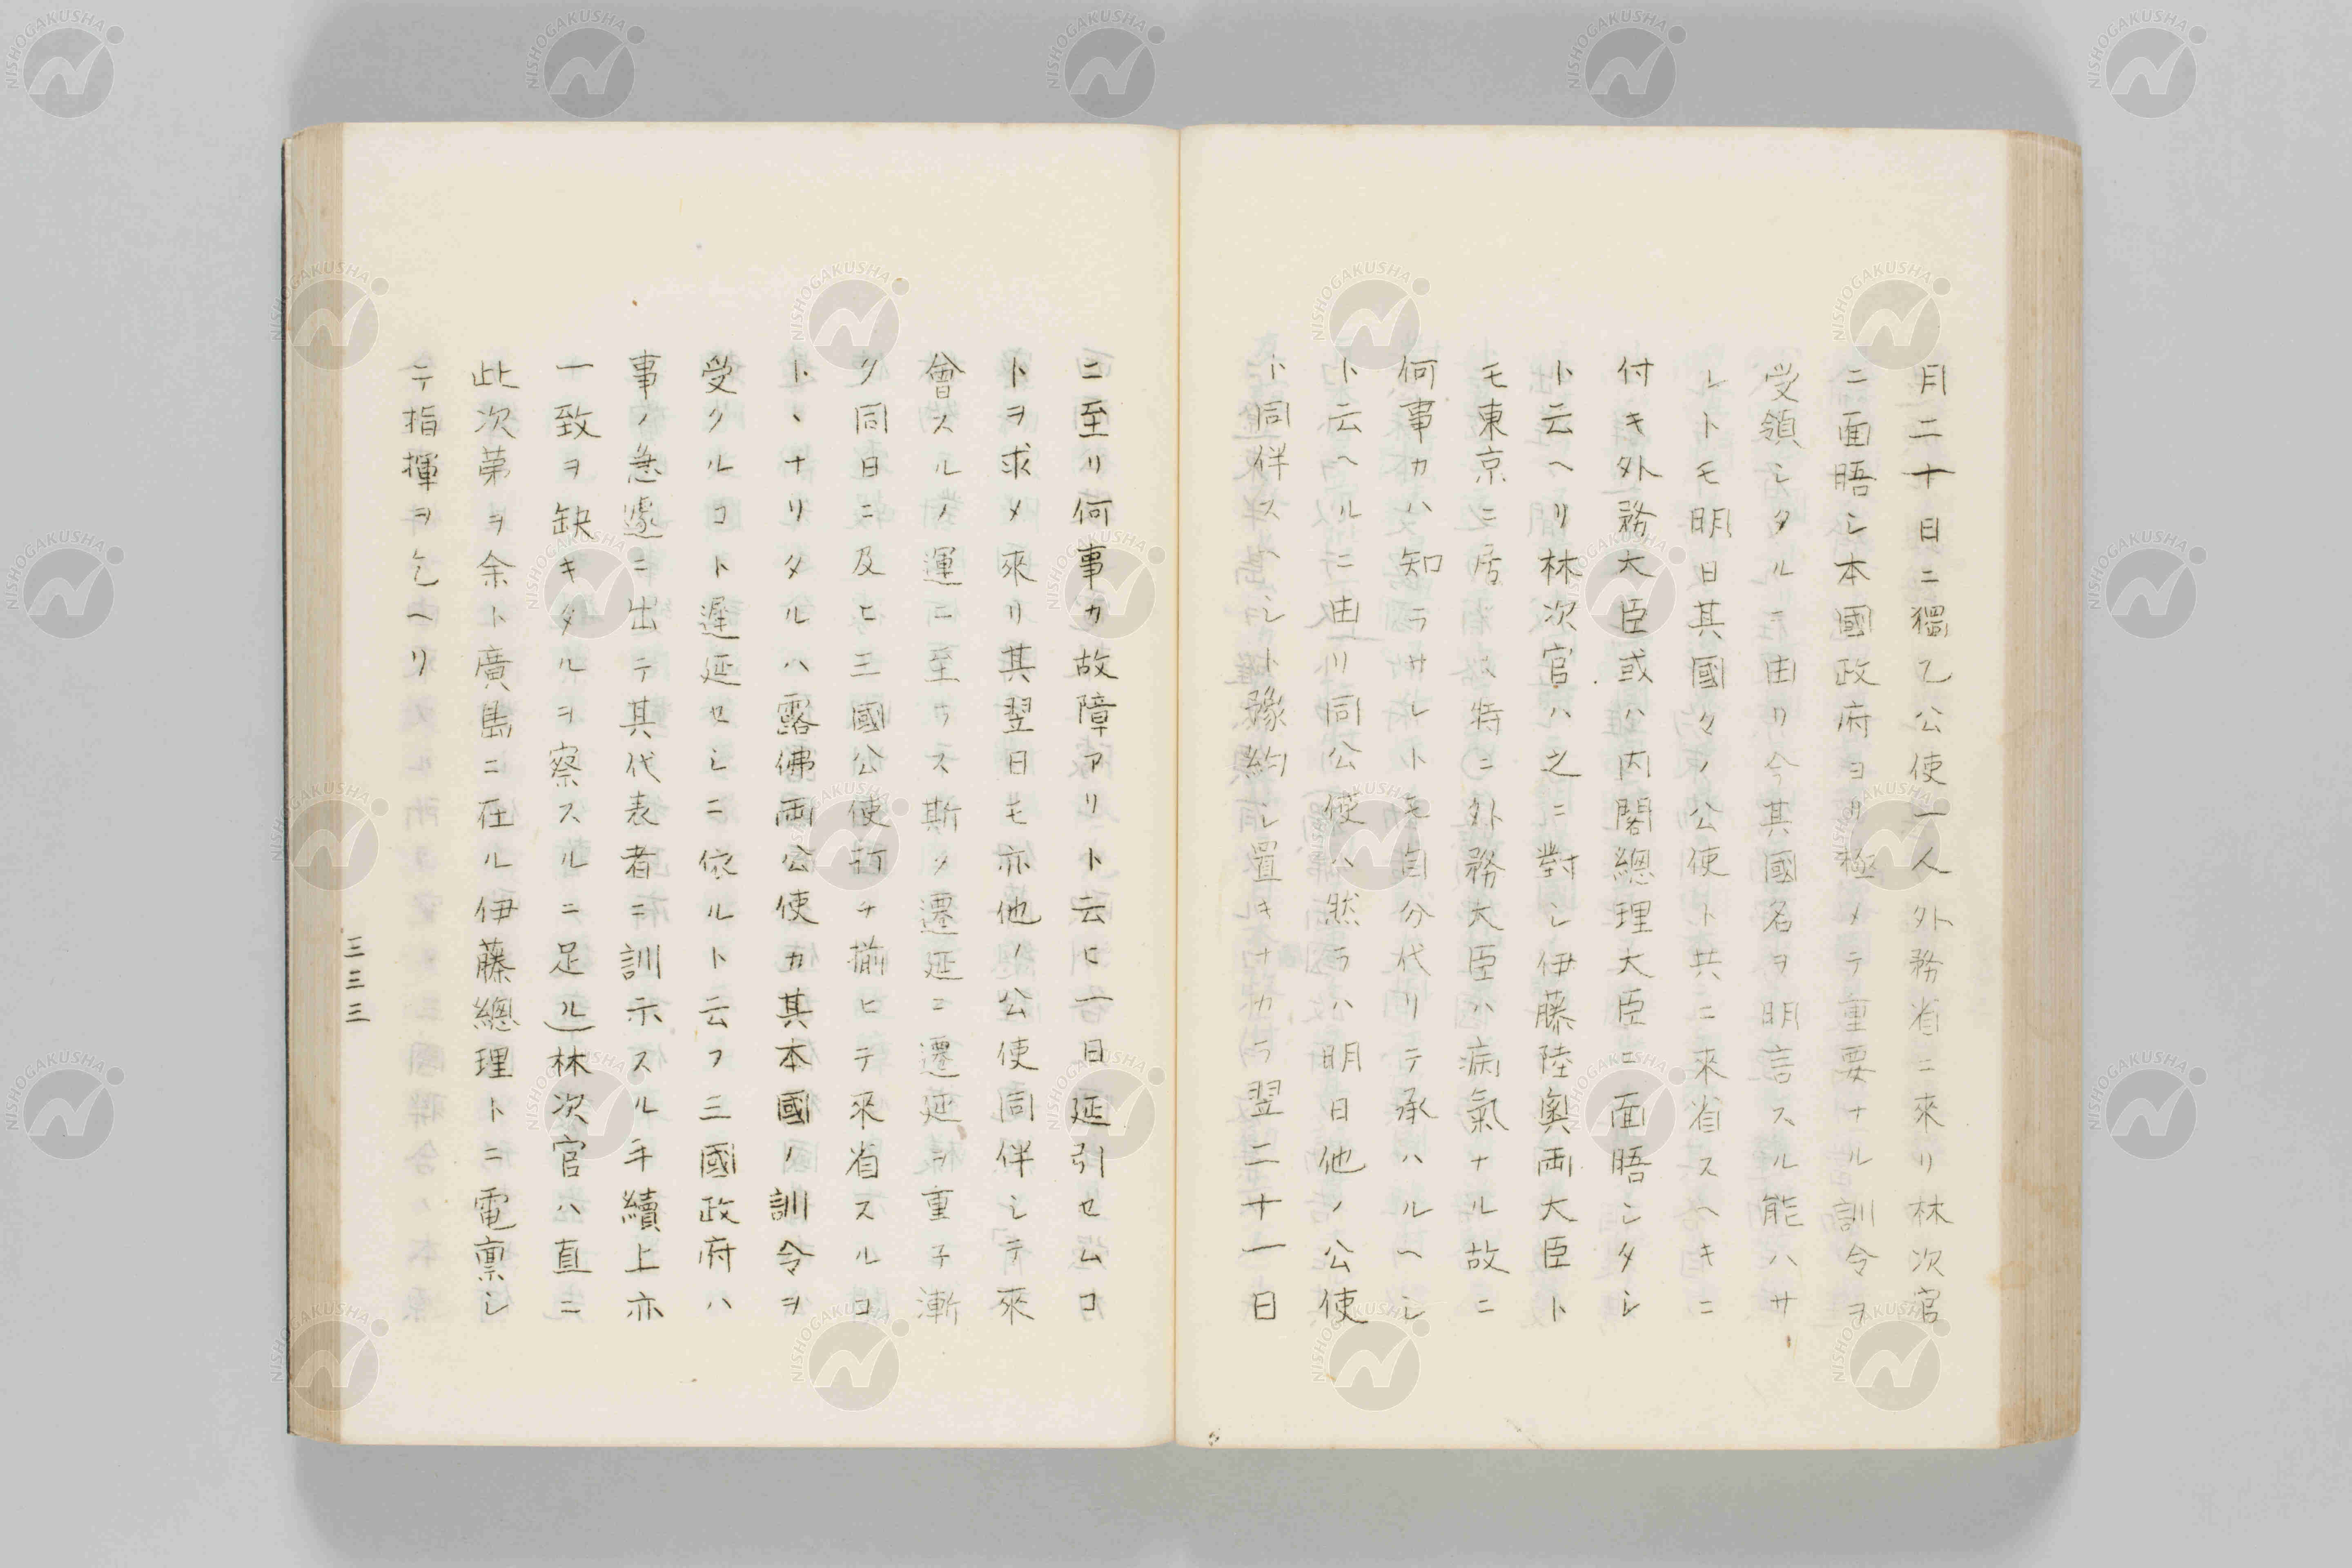 月二十日ニ獨乙公使一人外務省ニ來リ林次官
ニ面晤シ本國政府ヨリ極メテ重要ナル訓令ヲ
受領シタルニ由リ今其國名ヲ明言スル能ハサ
レトモ明日其國々ノ公使ト共ニ來省スヘキニ
付キ外務大臣或ハ内閣總理大臣ニ面晤シタシ
ト云ヘリ林次官ハ之ニ對シ伊藤陸奥両大臣ト
モ東京ニ居ス特ニ外務大臣ハ病氣ナル故ニ
何事カハ知ラサレトモ自分代リテ承ハルヘシ
ト云ヘルニ由リ同公使ハ然ラハ明日他ノ公使
ト同伴スヘシト豫約シ置キナカラ翌二十一日
ニ至リ何事カ故障アリト云ヒ一日延引セムコ
トヲ求メ來リ其翌日モ亦他ノ公使同伴シテ來
會スルノ運ニ至ラス斯ク遷延ニ遷延ヲ重子漸
ク同日ニ及ヒ三國公使打チ揃ヒテ來省スルコ
トヽナリタルハ露佛両公使カ其本國ノ訓令ヲ
受クルコト遅延セシニ依ルト云フ三國政府ハ
事ノ急遽ニ出テ其代表者ニ訓示スル手續上亦
一致ヲ缺キタルヲ察スルニ足ル林次官ハ直ニ
此次第ヲ余ト廣島ニ在ル伊藤總理トニ電稟シ
テ指揮ヲ乞ヘリ
三三三
NISHOGAKUSHA